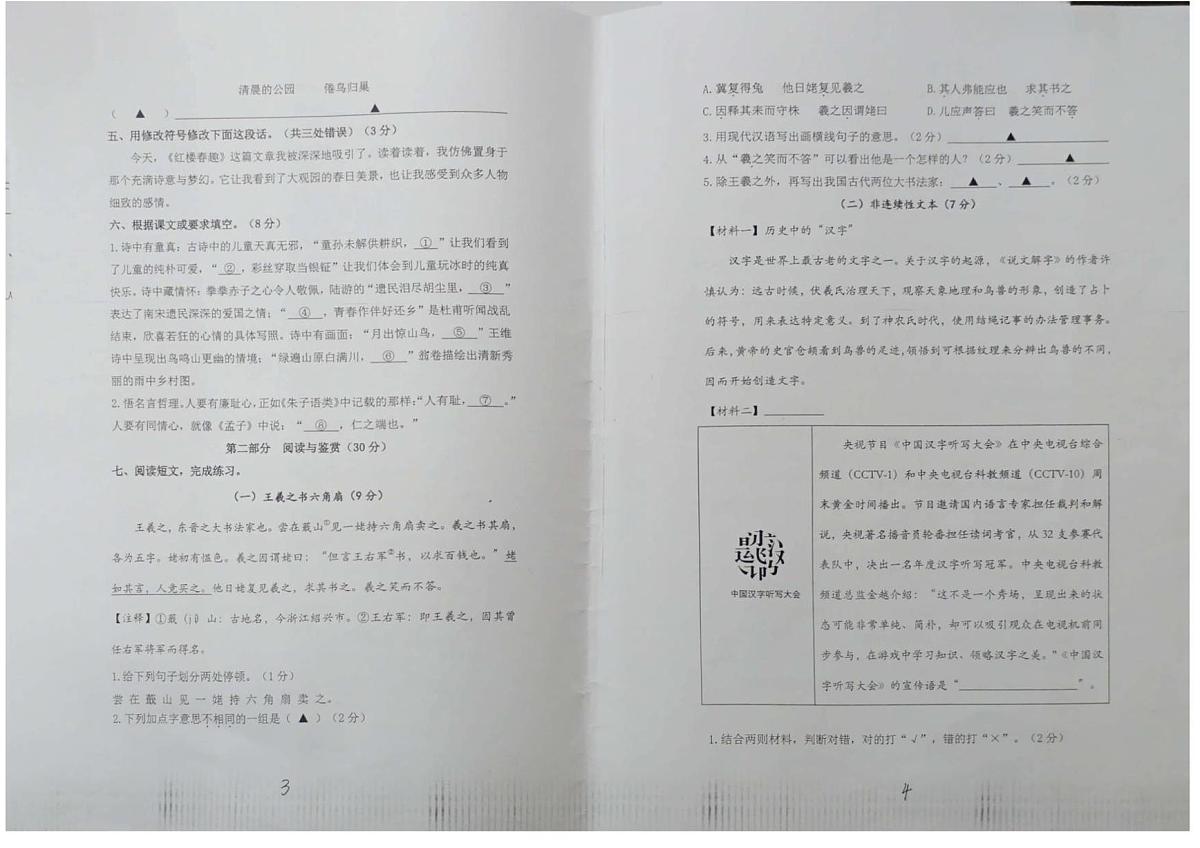 清晨的公园 倦鸟归巢
（ ▲ ）▲
五、用修改符号修改下面这段话。（共三处错误）（3分）
今天，《红楼春趣》这篇文章我被深深地吸引了。读着读着，我仿佛置身于
那个充满诗意与梦幻。它让我看到了大观园的春日美景，也让我感受到众多人物
细致的感情。
六、根据课文或要求填空。（8分）
1.诗中有童真：古诗中的儿童天真无邪，“童孙未解供耕织，①”让我们看到
了儿童的纯朴可爱，“②，彩丝穿取当银钲”让我们体会到儿童玩冰时的纯真
快乐。诗中藏情怀：拳拳赤子之心令人敬佩，陆游的“遗民泪尽胡尘里，③”
表达了南宋遗民深深的爱国之情；“④，青春作伴好还乡”是杜甫听闻战乱
结束，欣喜若狂的心情的具体写照。诗中有画面：“月出惊山鸟，⑤”王维
诗中呈现出鸟鸣山更幽的情境；“绿遍山原白满川，⑥”翁卷描绘出清新秀
丽的雨中乡村图。
2.悟名言哲理。人要有廉耻心，正如《朱子语类》中记载的那样：“人有耻，⑦。”
人要有同情心，就像《孟子》中说：“⑧，仁之端也。”
第二部分 阅读与鉴赏（30分）
七、阅读短文，完成练习。
（一）王羲之书六角扇（9分）
王羲之，东晋之大书法家也。尝在蕺山①见一姥持六角扇卖之。羲之书其扇，
各为五字。姥初有愠色。羲之因谓姥曰：“但言王右军②书，以求百钱也。”姥
如其言，人竞买之。他日姥复见羲之，求其书之。羲之笑而不答。
【注释】①蕺（jí）山：古地名，今浙江绍兴市。②王右军：即王羲之，因其曾
任右军将军而得名。
1.给下列句子划分两处停顿。（1分）
尝 在 蕺 山 见 一 姥 持 六 角 扇 卖 之。
2.下列加点字意思不相同的一组是（ ▲ ）（2分）
3
A.冀复得兔 他日姥复见羲之 B.其人弗能应也 求其书之
C.因释其耒而守株 羲之因谓姥曰 D.儿应声答曰 羲之笑而不答
3.用现代汉语写出画横线句子的意思。（2分）▲
4.从“羲之笑而不答”可以看出他是一个怎样的人？（2分）▲
5.除王羲之外，再写出我国古代两位大书法家：▲、▲。（2分）
（二）非连续性文本（7分）
【材料一】历史中的“汉字”
汉字是世界上最古老的文字之一。关于汉字的起源，《说文解字》的作者许
慎认为：远古时候，伏羲氏治理天下，观察天象地理和鸟兽的形象，创造了占卜
的符号，用来表达特定意义。到了神农氏时代，使用结绳记事的办法管理事务。
后来，黄帝的史官仓颉看到鸟兽的足迹，领悟到可根据纹理来分辨出鸟兽的不同，
因而开始创造文字。
【材料二】
中国汉字听写大会
央视节目《中国汉字听写大会》在中央电视台综合
频道（CCTV-1）和中央电视台科教频道（CCTV-10）周
末黄金时间播出。节目邀请国内语言专家担任裁判和解
说，央视著名播音员轮番担任读词考官，从32支参赛代
表队中，决出一名年度汉字听写冠军。中央电视台科教
频道总监金越介绍：“这不是一个秀场，呈现出来的状
态可能非常单纯、简朴，却可以吸引观众在电视机前同
步参与，在游戏中学习知识、领略汉字之美。”《中国汉
字听写大会》的宣传语是“”。
1.结合两则材料，判断对错，对的打“√”，错的打“×”。（2分）
4